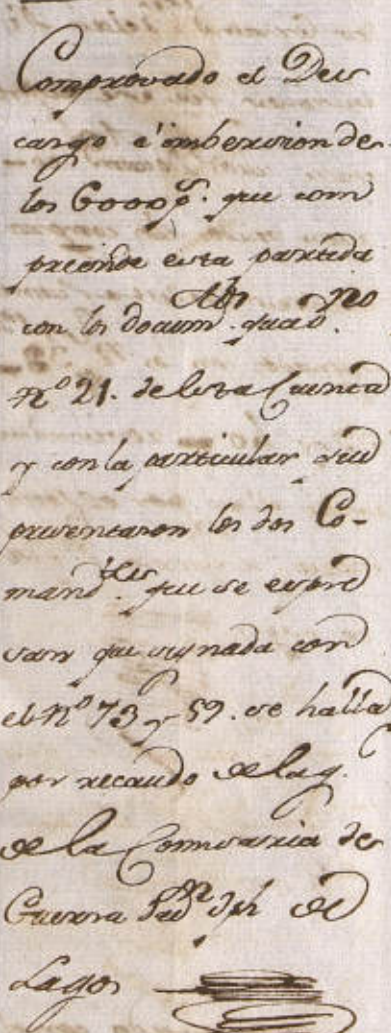 Comprovado el Des
cargo e imbersion de
los 6000 p.s que com
preende esta partida
con los docum.tos quad.no
nº 21. de esta Cuenta
y con la particular que
presentaron los dos Co-
mand.tes que se expre
san que signada con
el nº 73 y 59. se halla
por recaudo de la q.
de la Comisaria de
Guerra D.n Jph de
Lagos